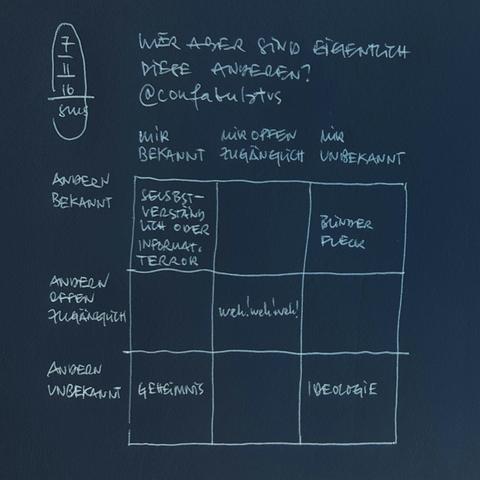 7
11
16
WER ABER SIND EIGENTLICH
DIESE ANDEREN?
@confabulstvs
MIR
BEKANNT
MIR OFFEN
ZUGÄNGLICH
MIR
UNBEKANNT
ANDERN
BEKANNT
SELSBST-
VERSTÄND
LICH ODER
INFORMAT.
TERROR
BLINDER
FLECK
ANDERN
OFFEN
ZUGÄNGLICH
weh! weh! weh!
ANDERN
UNBEKANNT
GEHEIMNIS
IDEOLOGIE